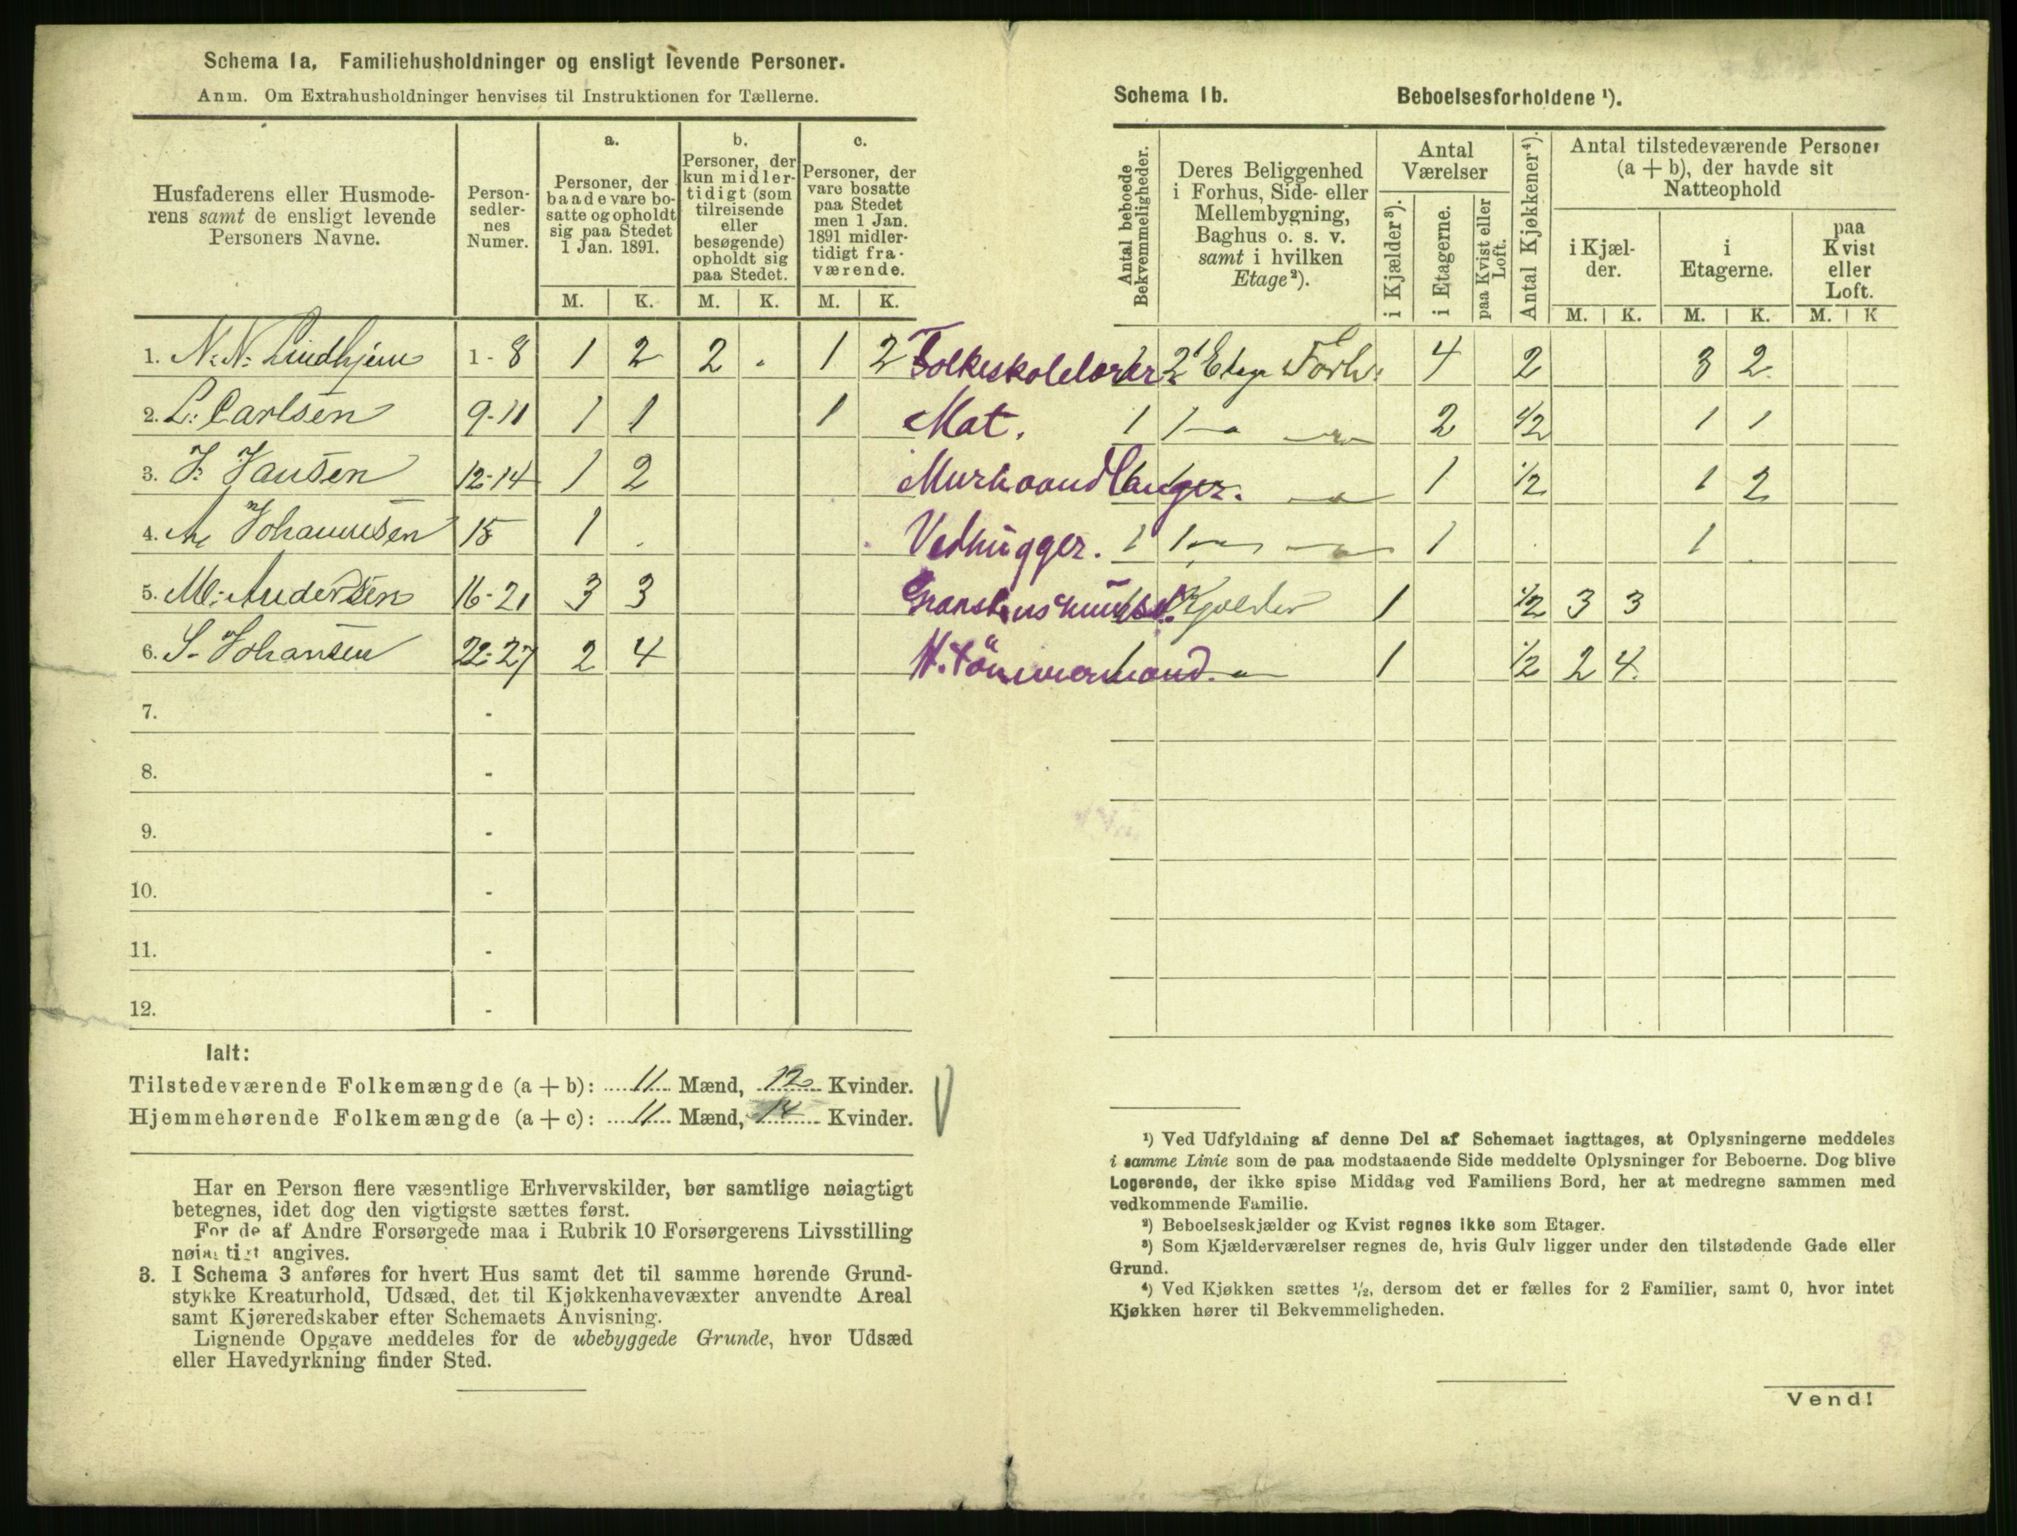 Schema 1a. Familiehusholdninger og ensligt levende Personer.
Anm. Om Extrahusholdninger henvises til Instruktionen for Tællerne.
Husfaderens eller Husmode-
rens samt de ensligt levende
Personers Navne.
Person-
sedler-
nes
Numer.
a.
Personer, der
baade vare bo-
satte og opholdt
sig paa Stedet
1 Jan. 1891.
b.
Personer, der
kun midler-
tidigt (som
tilreisende
eller
besøgende)
opholdt sig
paa Stedet.
c.
Personer, der
vare bosatte
paa Stedet
men 1 Jan.
1891 midler-
tidigt fra-
værende.
M. K. M. K. M. K.
1. N. N. Lindhjem 1-8 1 2 2 . 1 2 Folkeskolelærer
2. L. Carlsen 9-11 1 1 1 Mat.
3. J. Jansen 12-14 1 2 Murhaandlanger.
4. Johannesen 15 1 . Vedhugger.
5. M. Andersen 16-21 3 3
6. S. Johansen 22-27 2 4 H. tömmermand.
7. -
8. -
9. -
10. -
11. -
12. -
Ialt:
Tilstedeværende Folkemængde (a + b): 11 Mænd, 12 Kvinder.
Hjemmehørende Folkemængde (a + c): 11 Mænd, 14 Kvinder.
Har en Person flere væsentlige Erhvervskilder, bør samtlige nøiagtigt
betegnes, idet dog den vigtigste sættes først.
For de af Andre Forsørgede maa i Rubrik 10 Forsørgerens Livsstilling
nøiagtigt angives.
3. I Schema 3 anføres for hvert Hus samt det til samme hørende Grund-
stykke Kreaturhold, Udsæd, det til Kjøkkenhavevæxter anvendte Areal
samt Kjøreredskaber efter Schemaets Anvisning.
Lignende Opgave meddeles for de ubebyggede Grunde, hvor Udsæd
eller Havedyrkning finder Sted.
Schema 1b. Beboelsesforholdene ¹).
Antal beboede
Bekvemmeligheder.
Deres Beliggenhed
i Forhus, Side- eller
Mellembygning,
Baghus o. s. v.
samt i hvilken
Etage²).
Antal
Værelser
i Kjælder³).
i Etagerne.
paa Kvist eller
Loft.
Antal Kjøkkener⁴).
Antal tilstedeværende Personer
(a + b), der havde sit
Natteophold
i Kjæl-
der.
i
Etagerne.
paa
Kvist
eller
Loft.
M. K. M. K. M. K
2 Etage Forh. 4 2 3 2
1 1 2 1/2 1 1
1 1/2 1 2
1 1 1 1
Kjælder 1 1/2 3 3
1 1 1/2 2 4
¹) Ved Udfyldning af denne Del af Schemaet iagttages, at Oplysningerne meddeles
i samme Linie som de paa modstaaende Side meddelte Oplysninger for Beboerne. Dog blive
Logerende, der ikke spise Middag ved Familiens Bord, her at medregne sammen med
vedkommende Familie.
²) Beboelseskjælder og Kvist regnes ikke som Etager.
³) Som Kjælderværelser regnes de, hvis Gulv ligger under den tilstødende Gade eller
Grund.
⁴) Ved Kjøkken sættes ½, dersom det er fælles for 2 Familier, samt 0, hvor intet
Kjøkken hører til Bekvemmeligheden.
Vend!